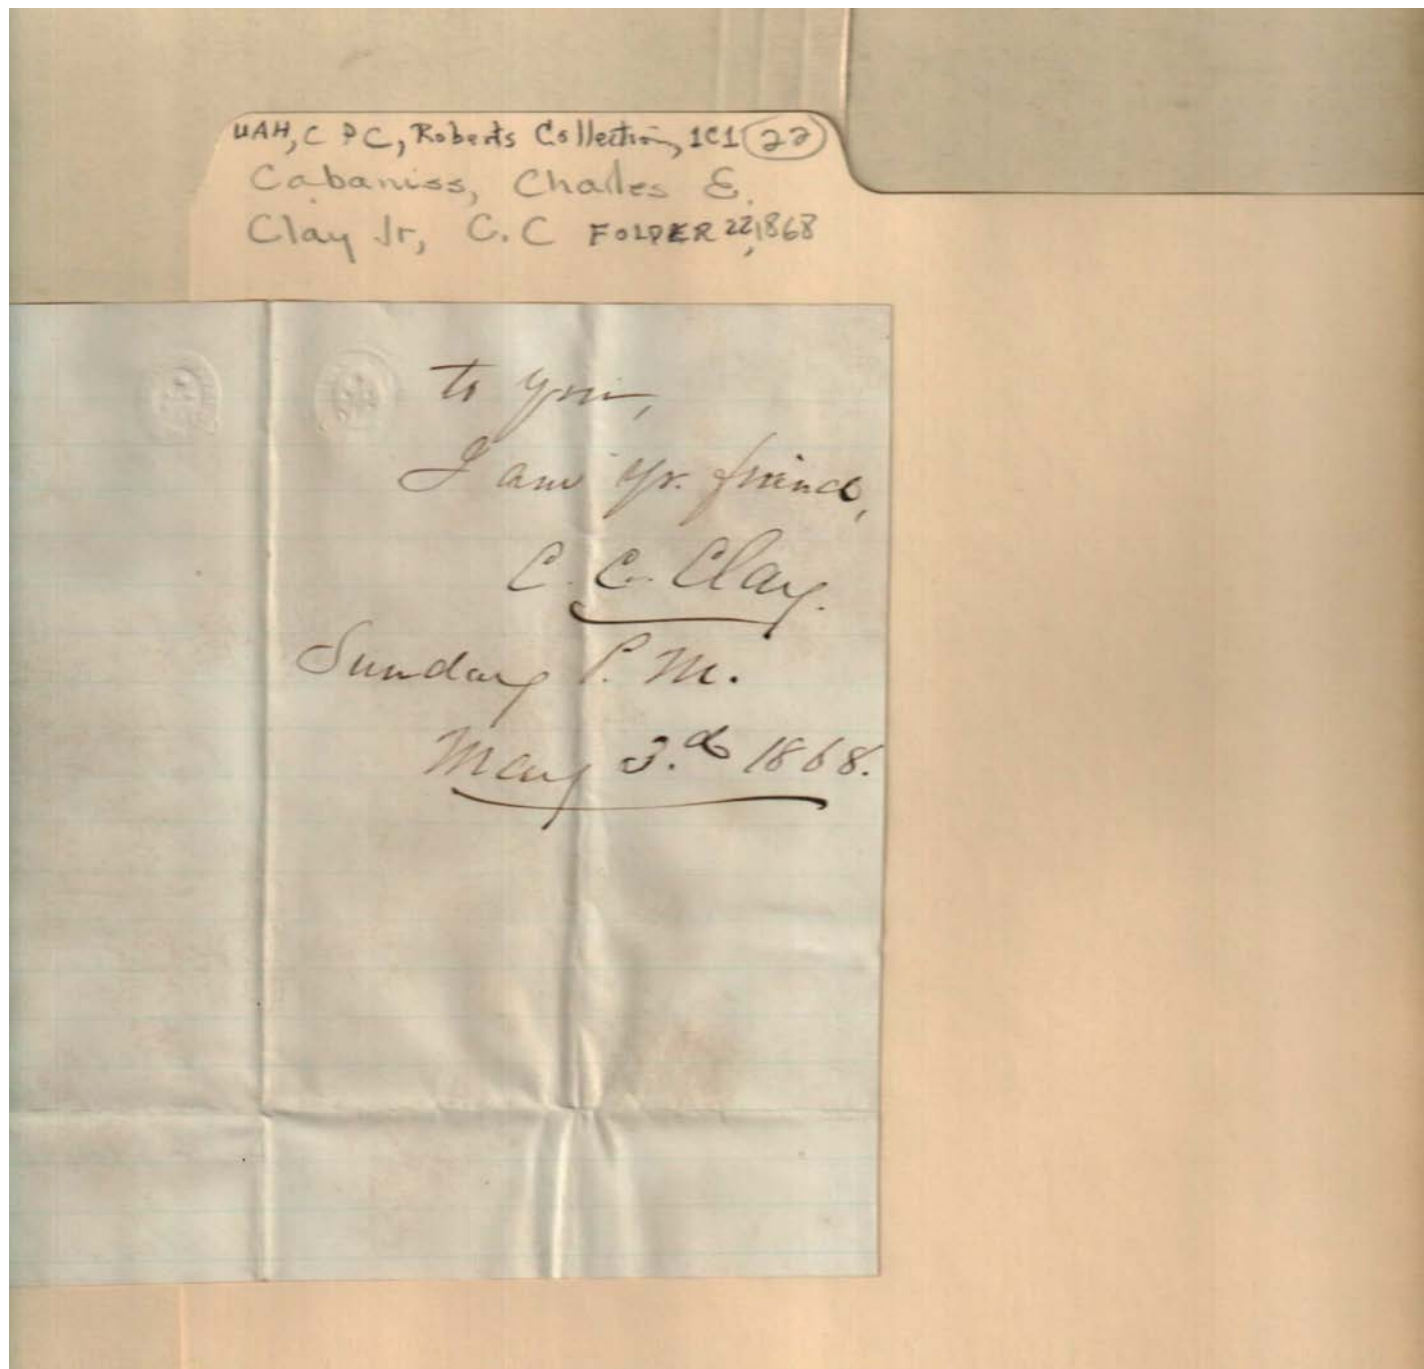 UAH, C P C, Roberts Collection, 1C1 22
Cabaniss, Charles E.
Clay Jr, C.C FOLDER 22, 1868
to you,
I am yr. friend,
C. C. Clay.
Sunday P. M.
May 3.d 1868.